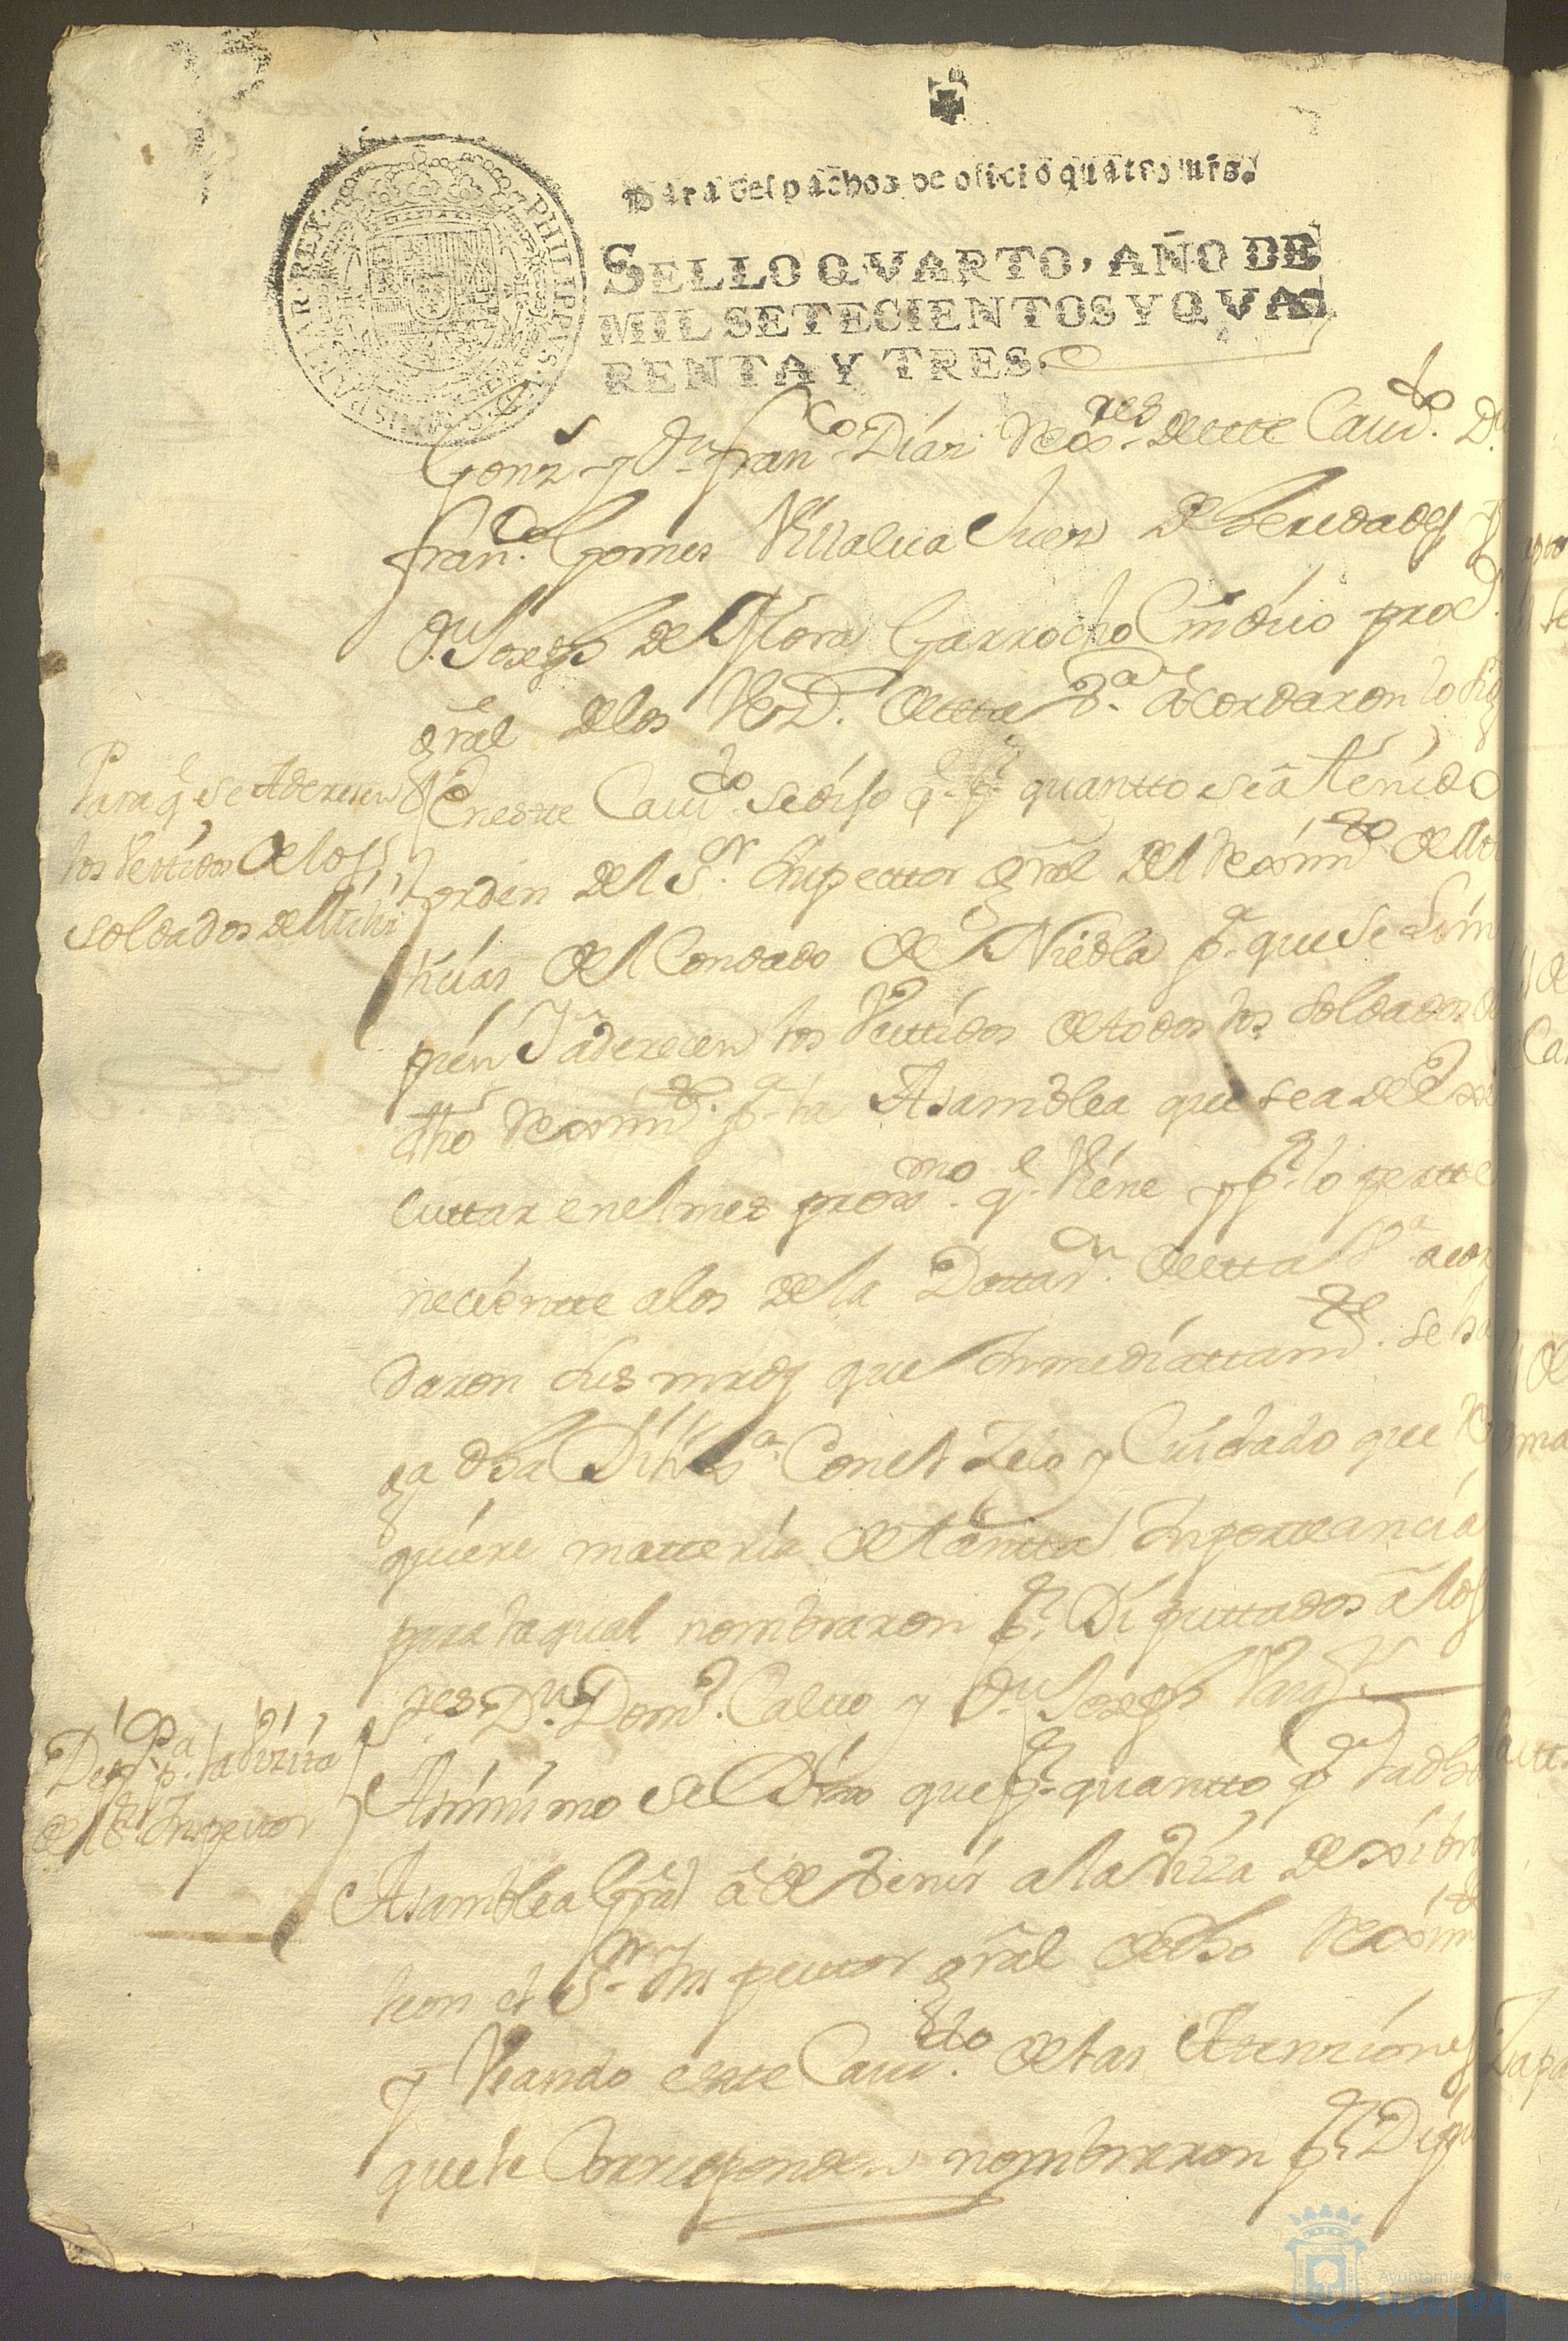 Para despachos de oficio quatro mrs.
SELLO QVARTO, AÑO DE
MIL SETECIENTOS Y QVA
RENTA Y TRES.
PHILIPPUS
HISPANIAR REX
Gonz y Dn franco Díaz Rexres deste Caudo. Dn
franco Gomes Villalua Juez de heredades y
Dn Joseph de Mora Garrocho Sindico procr
gral de los Vos. desta Va acordaron lo sigte
Para q se aderesen
los Vestidos de los
soldados de Mili
En este Caudo se dijo qe pr quantto se a tenido
orden del Sr Inspector gral del Reximto de Mi
licias del Condado de Niebla pa que se Lim
pien Y aderecen los Vestidos de todos los soldados de
dho Reximto pa la Asamblea que sea de exe
cuttar en el mes proxmo qe Viene y pr lo pertte
neciente a los de la Dotazn desta Va acor
daron sus mrds que Inmediattamte se ha
ga dha Dilixa Con el Zelo y Cuidado que Re
quiere matteria de tantta Importtancia
para la qual nombraron pr Diputtados a los
res Dn Domo Caluo y Dn Joseph Varg
Dipps pa la Vizita
del Sr Inspector
Asimismo se Dixo que pr quantto pa la dha
Asamblea Gral a de Venir a la Villa de xibra
leon el Sr Inspector gral de dho Reximto
y Vsando este Caudo de las Attenziones
que le Corresponden nombraron pr Dipu
Ayuntamiento de
HUELVA